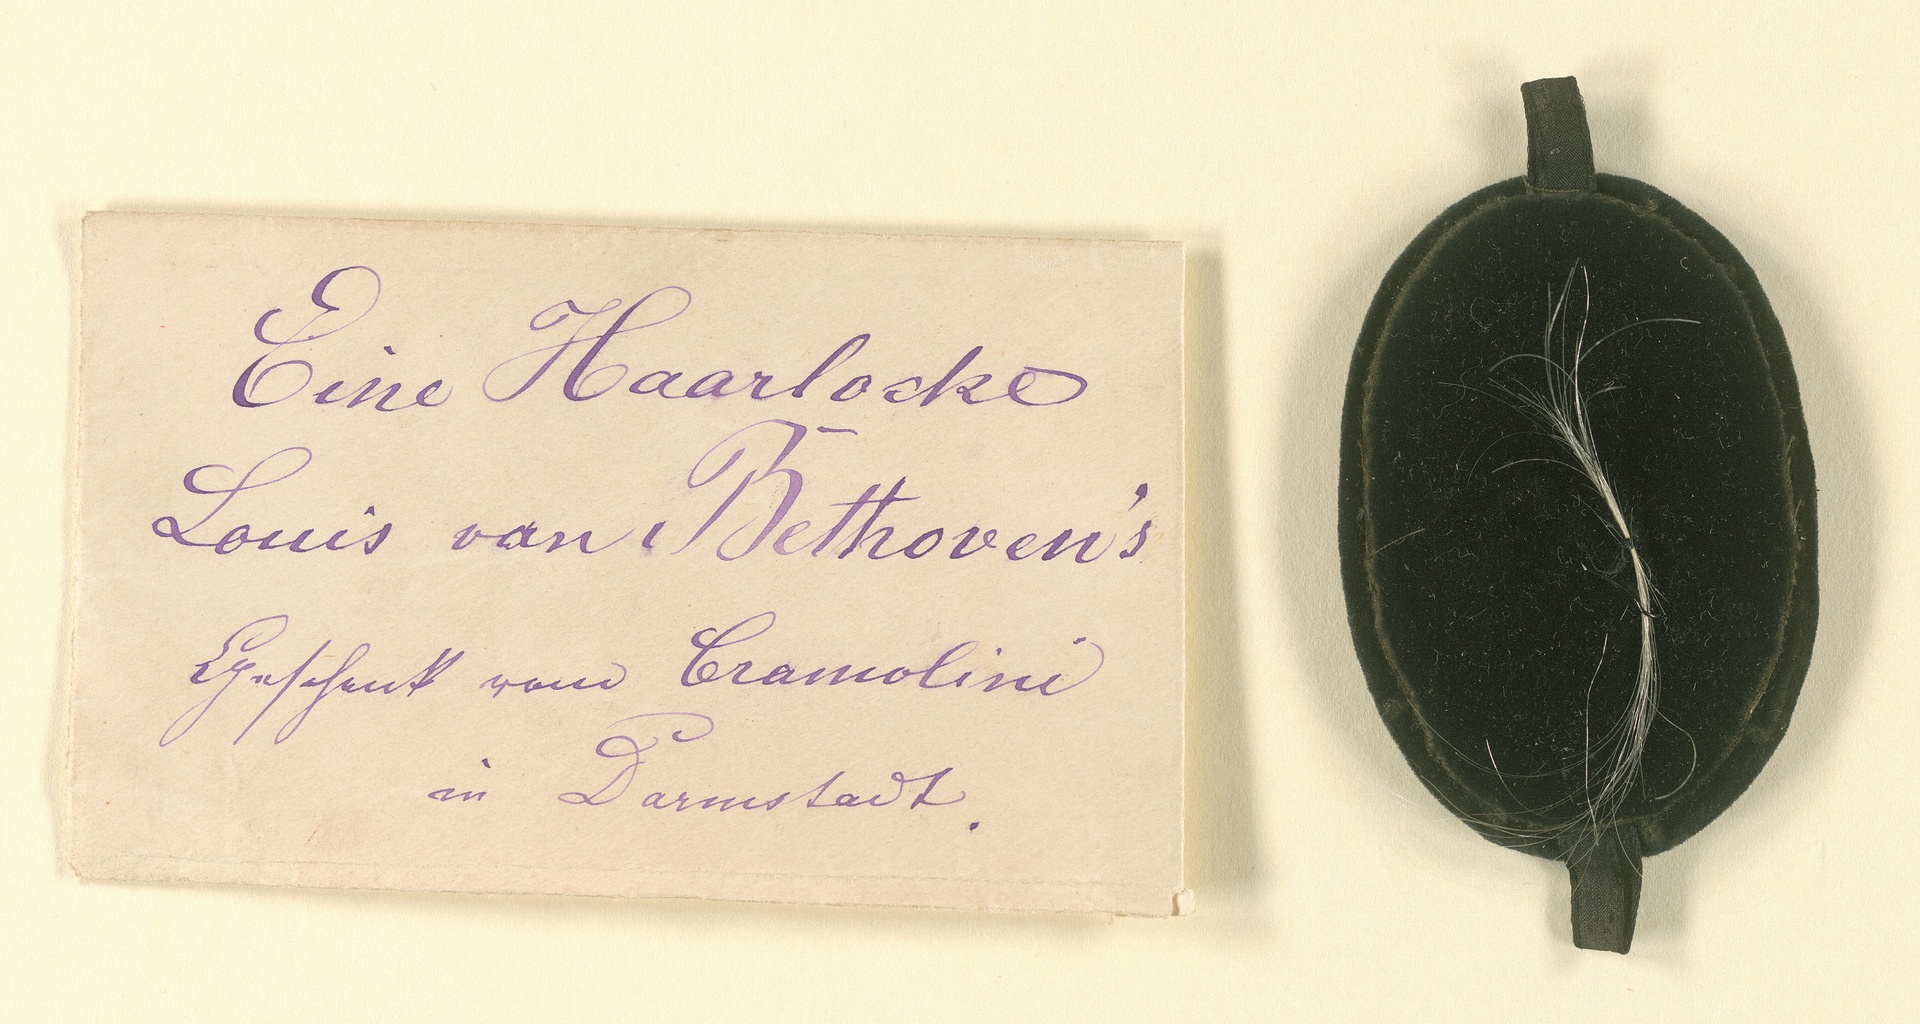 Eine Haarlocke
Louis van Bethoven's
Geschenk vom Cramolini
in Darmstadt.